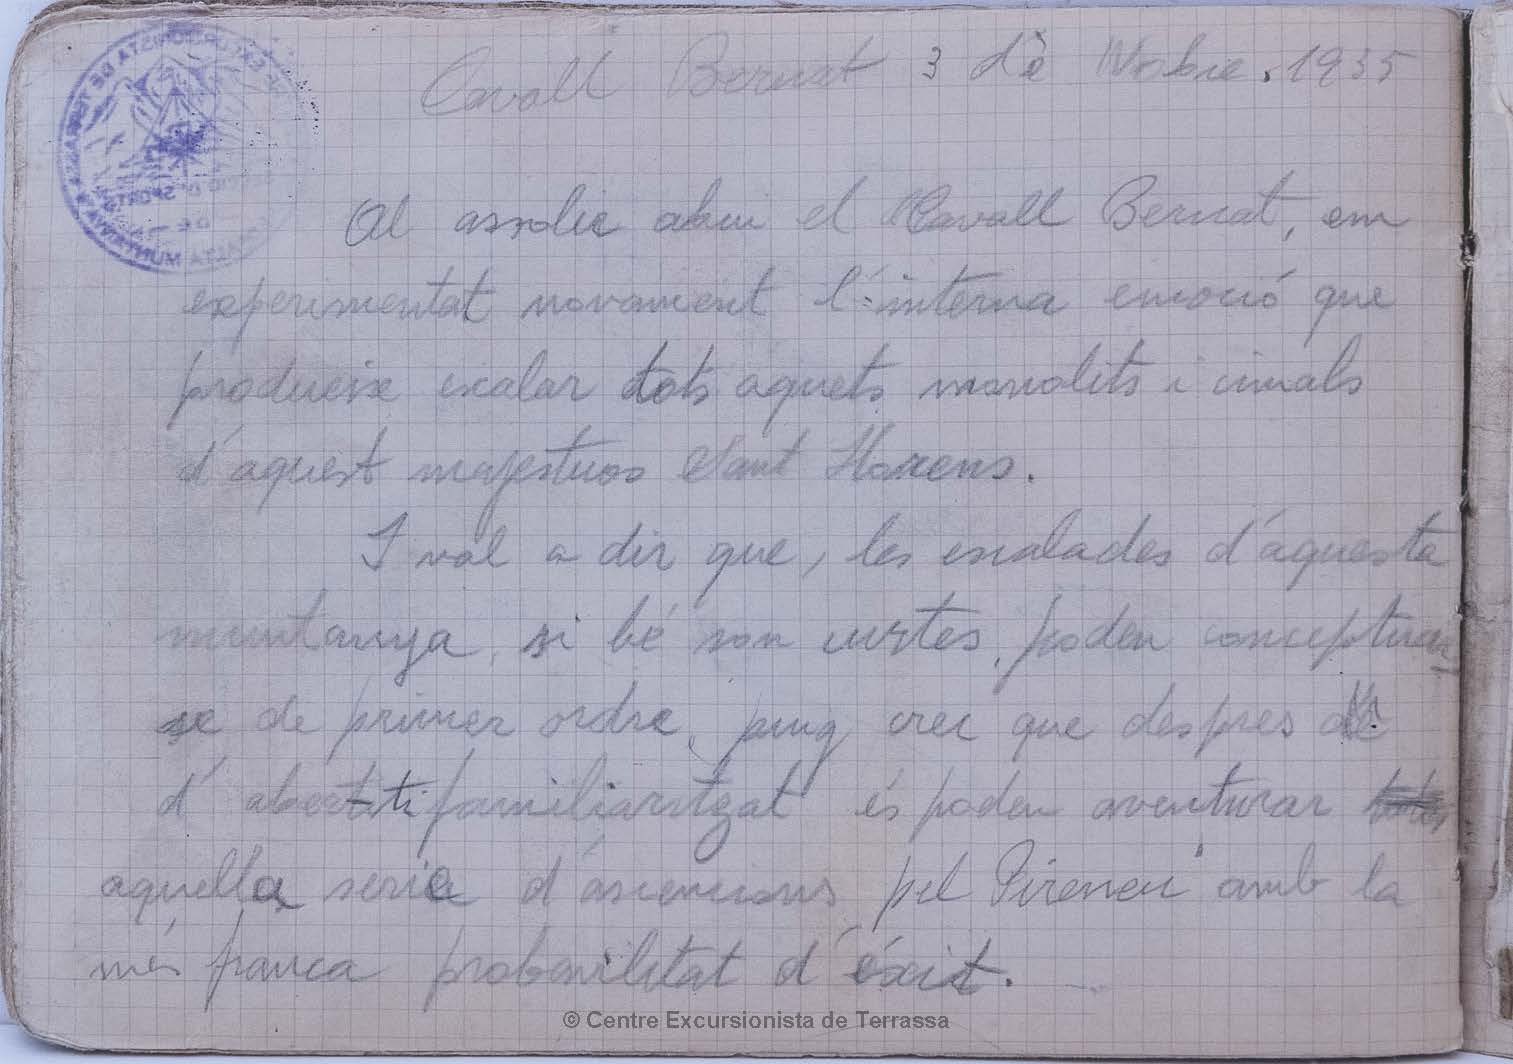 Cavall Bernat 3 de Nobre. 1935
Al assolir abui el Cavall Bernat, em
experimentat novament l'interna emoció que
produeix escalar tots aquets monolits i cimals
d'aquest majestuos Sant Llorens.
I val a dir que, les escalades d'aquesta
muntanya, si bé son curtes, poden conceptuar-
se de primer ordre, puig crec que despres
d' familiaritzat és poden aventurar
aquella seria d'ascencions pel Pireneu amb la
més franca probavilitat d'éxit.
© Centre Excursionista de Terrassa